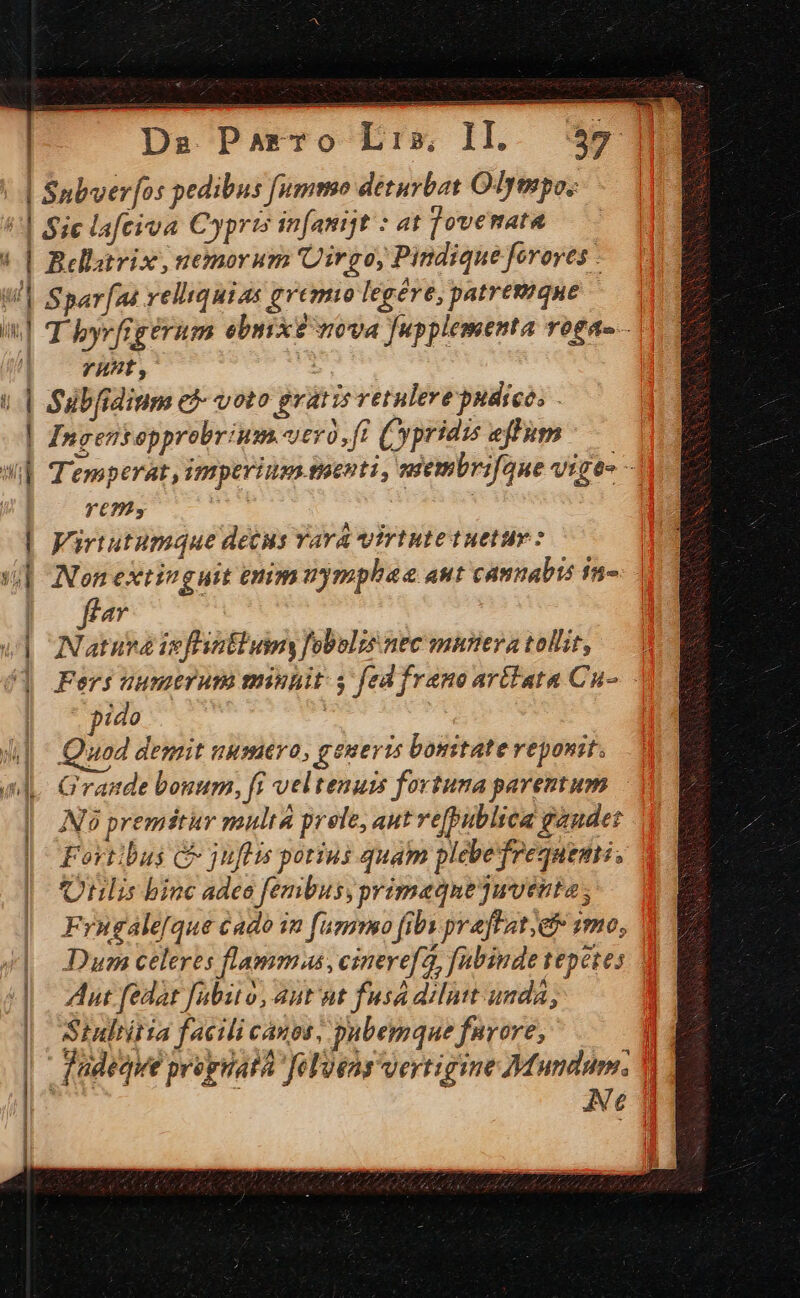 De Partu Lib. II. 37
Subversos pedibus summo deturbat Olympo.
Sic lasciva Cypris insanijt : at Jove nata
Bellatrix, nemorum Virgo, Pindique sorores
Sparsas relliquias gremio legére, patremque
Thyrsigerum obnixè nova supplementa roga-
runt,
Subsidium & voto gratis retulere pudico.
Ingens opprobrium verò, si Cypridis æstum
Temperat, imperium menti, membrisque vigo-
rem,
Virtutumque decus rarâ virtute tuetur :
Non extinguit enim nymphææ aut cannabis in-
star
Naturæ instinctum, sobolis nec munera tollit,
Fers numerum minuit ; sed fræno arctata Cu-
pido
Quod demit numero, generis bonitate reponit.
Grande bonum, si vel tenuis fortuna parentum
Nō premitur multâ prole, aut respublica gaudet
Fortibus & justis potius quàm plebe frequenti.
Utilis hinc adeo senibus, primæque juventæ,
Frugalesque cado in summo sibi præstat, & imo,
Dum celeres flammas, cineresq́, subinde tepētes
Aut sedat subitò, aut ut fusâ diluit undâ,
Stultitia facili canos, pubemque furore,
Indeque prognatâ solvens vertigine Mundum.
Ne